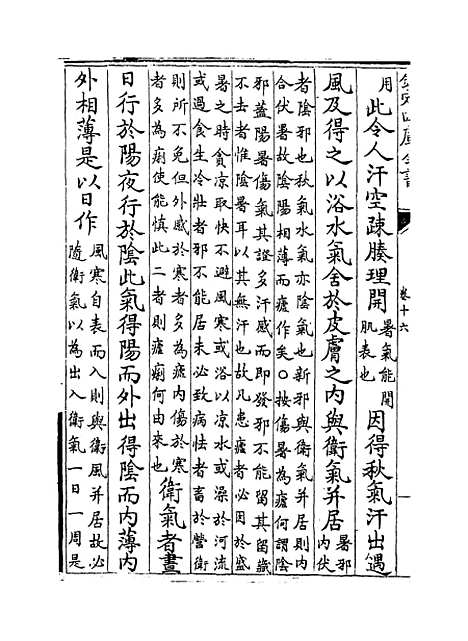 欽定四庫全書
卷十六
用此令人汗空疎腠理開
暑氣能開
肌表也
因得秋氣汗出遇
風及得之以浴水氣舍於皮膚之內與衛氣并居
暑邪
内伏
者陰邪也秋氣水氣亦陰氣也新邪與衛氣并居則内
合伏暑故陰陽相薄而瘧作矣○按傷暑為瘧何謂陰
邪蓋陽暑傷氣其證多汗感而即發邪不能留其留蔵
不去者惟陰暑耳以其無汗也故凡患瘧者必因於盛
暑之時貪凉取快不避風寒或浴以凉水或澡於河流
或過食生冷壯者邪不能居未必致病怯者蓄於營衛
則所不免但外感於寒者多為瘧内傷於寒
者多為痢使能慎此二者則瘧痢何由來也
衛氣者晝
日行於陽夜行於陰此氣得陽而外出得陰而内薄内
外相薄是以日作
風寒自表而入則與衛風并居故必
隨衛氣以為出入衛氣一日一周是